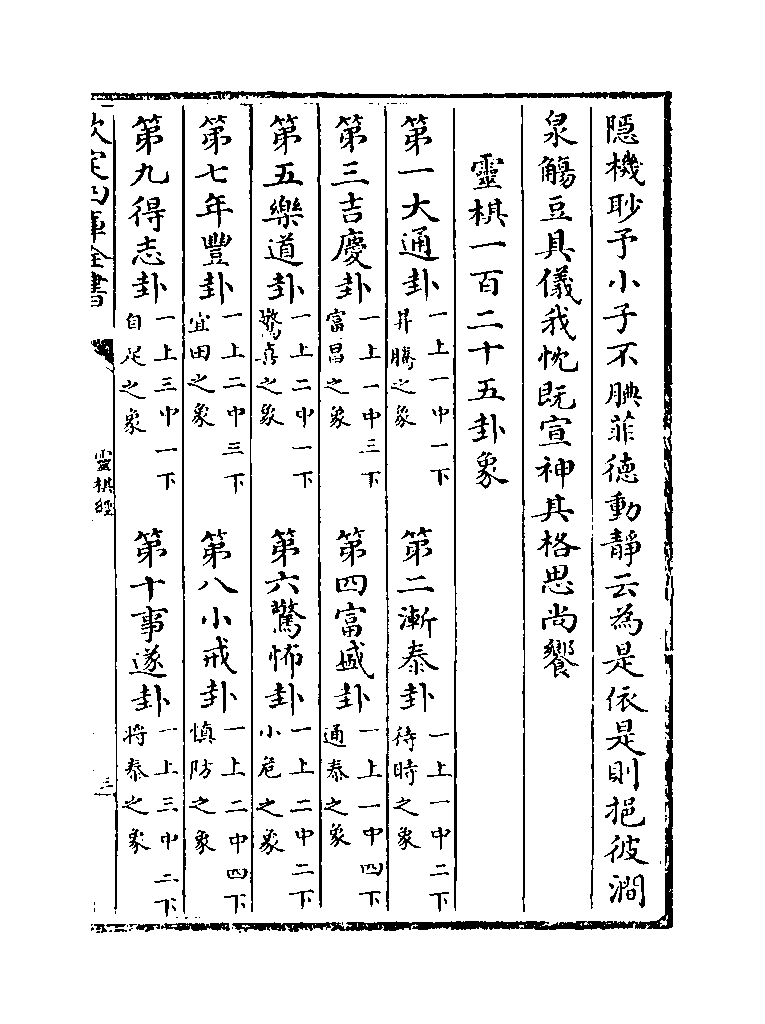 隠機眇予小子不腆菲德動靜云為是依是則挹彼澗
泉觴豆具儀我忱既宣神其格思尚饗
靈棋一百二十五卦象
第一大通卦 一上一中一下 昇騰之象 第二漸泰卦 一上一中二下 待時之象
第三吉慶卦 一上一中三下 富昌之象 第四富盛卦 一上一中四下 通泰之象
第五樂道卦 一上二中一下 驚喜之象 第六驚怖卦 一上二中二下 小危之象
第七年豐卦 一上二中三下 宜田之象 第八小戒卦 一上二中四下 慎防之象
第九得志卦 一上三中一下 自足之象 第十事遂卦 一上三中二下 將泰之象
欽定四庫全書 靈棋經 三